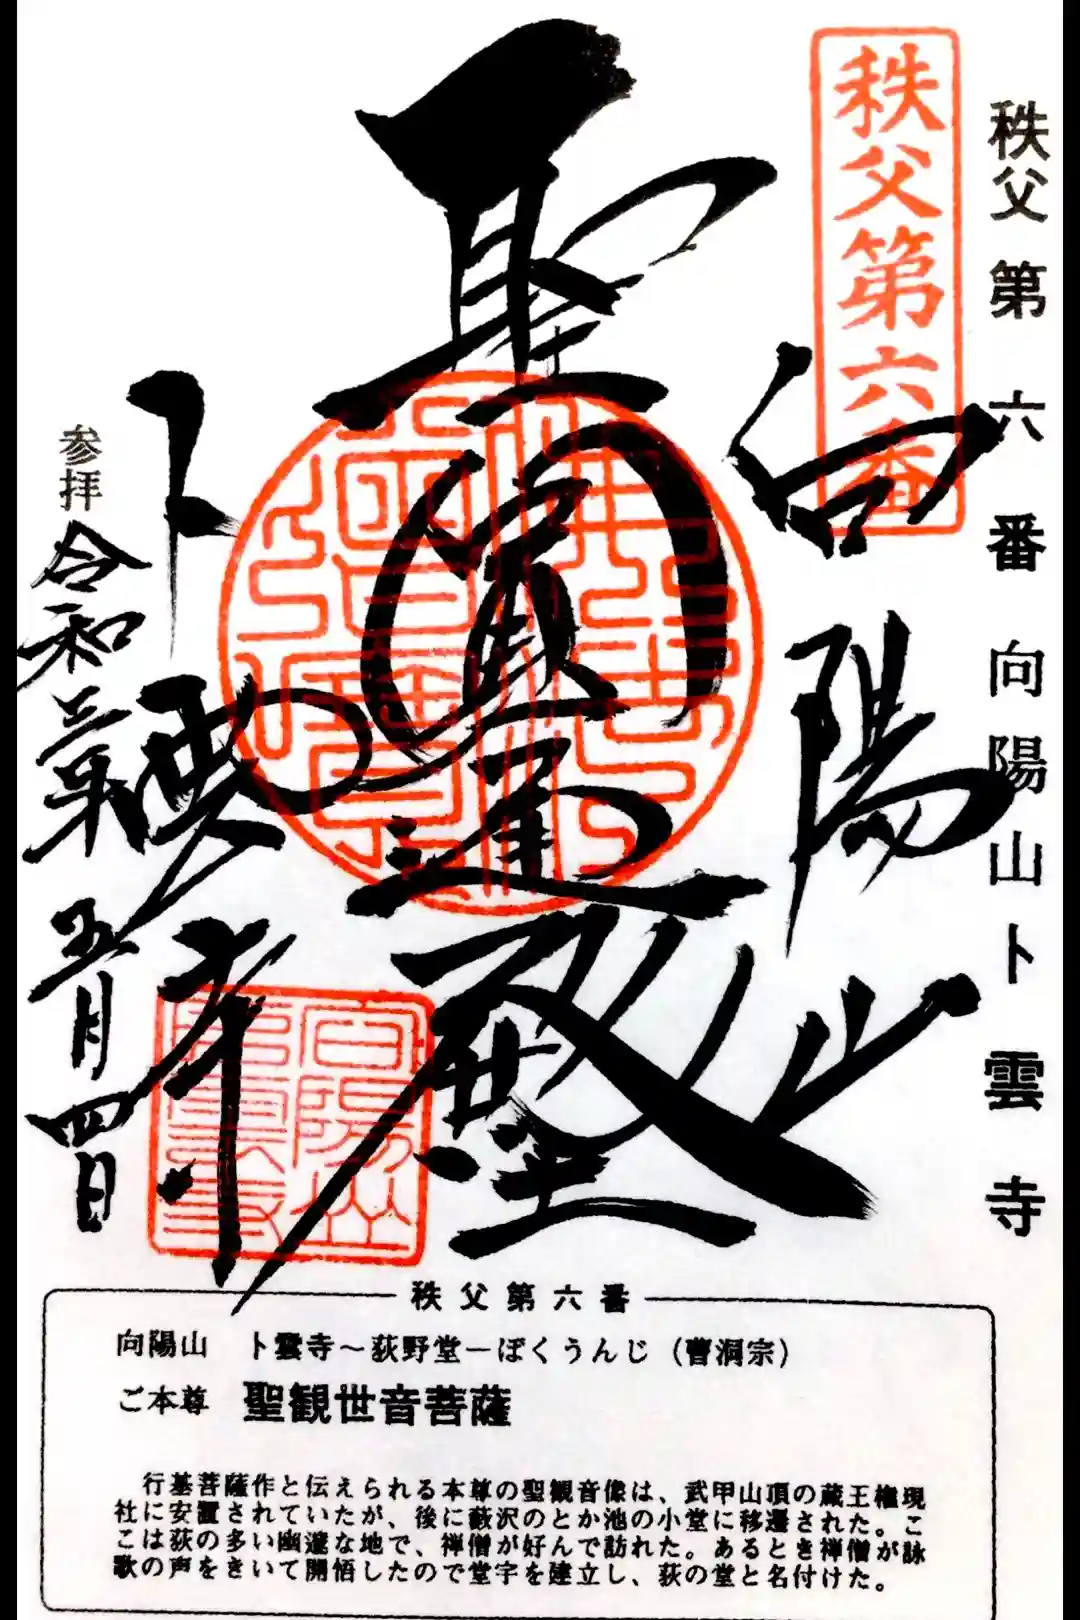 秩父第六番 向陽山卜雲寺
秩父第六番
向陽山
聖
殿
卜雲寺
参拝 令和三年五月四日
向陽山
卜雲寺
秩父第六番
向陽山 卜雲寺～荻野堂ーぼくうんじ（曹洞宗）
ご本尊 聖観世音菩薩
行基菩薩作と伝えられる本尊の聖観音像は、武甲山頂の蔵王権現
社に安置されていたが、後に藪沢のとか池の小堂に移遷された。こ
こは荻の多い幽邃な地で、禅僧が好んで訪れた。あるとき禅僧が詠
歌の声をきいて開悟したので堂宇を建立し、荻の堂と名付けた。